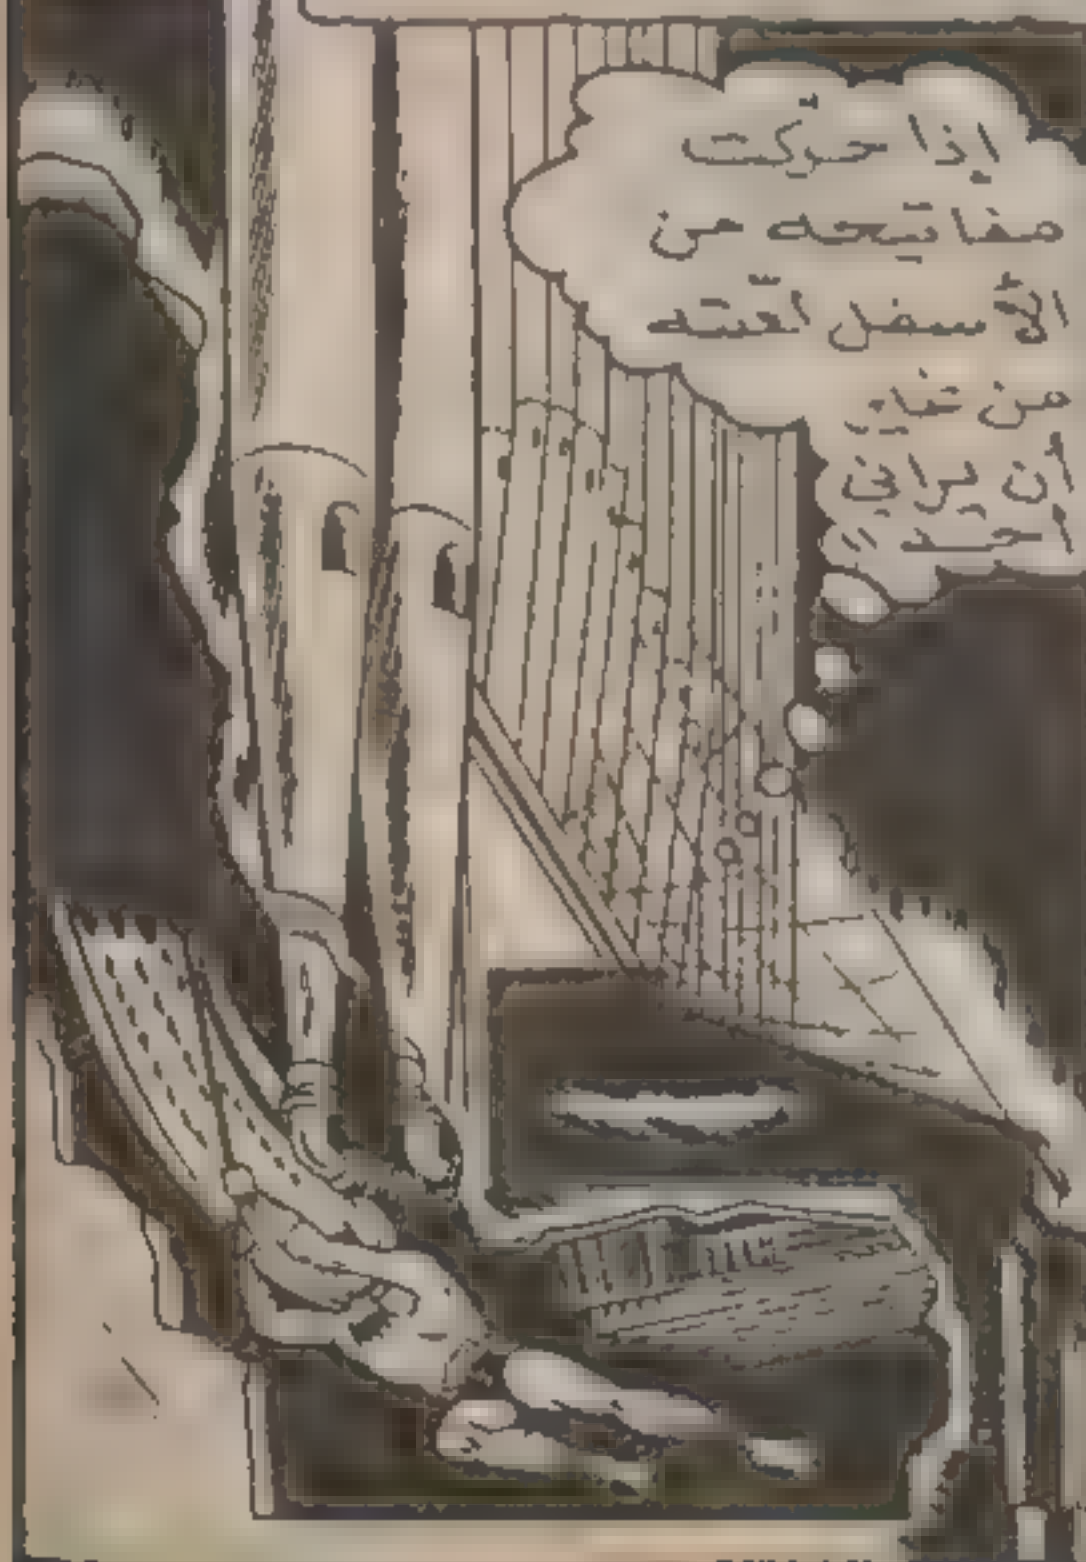 إذا حرّكت
مفاتيحه من
الأسفل
من غير
أن يراني
أحد !!